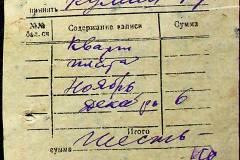 принять
№№ бал. сч Содержание записи Сумма
Кварт
плата
Ноябрь
декабрь 6
Итого
Шесть
сумма